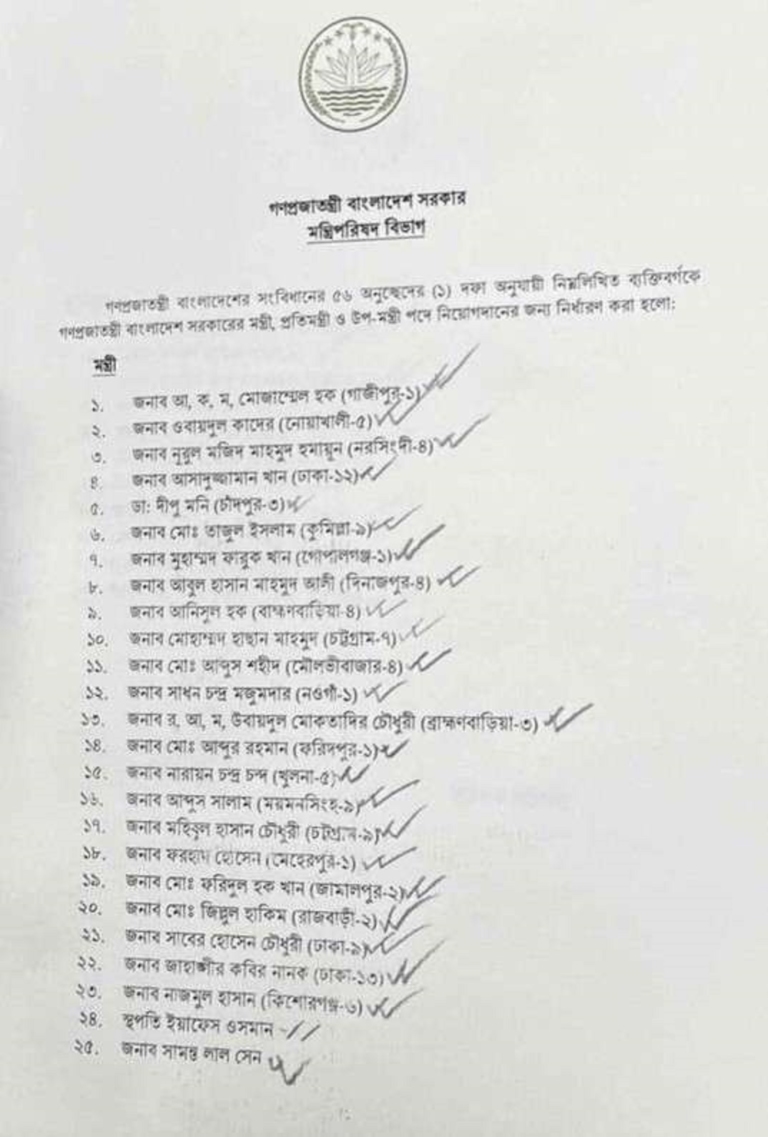 গণপ্রজাতন্ত্রী বাংলাদেশ সরকার
মন্ত্রিপরিষদ বিভাগ
গণপ্রজাতন্ত্রী বাংলাদেশের সংবিধানের ৫৬ অনুচ্ছেদের (১) দফা অনুযায়ী নিম্নলিখিত ব্যক্তিবর্গকে
গণপ্রজাতন্ত্রী বাংলাদেশ সরকারের মন্ত্রী, প্রতিমন্ত্রী ও উপ-মন্ত্রী পদে নিয়োগদানের জন্য নির্ধারণ করা হলো:
মন্ত্রী
১. জনাব আ, ক, ম, মোজাম্মেল হক (গাজীপুর-১)
২. জনাব ওবায়দুল কাদের (নোয়াখালী-৫)
৩. জনাব নূরুল মজিদ মাহমুদ হুমায়ূন (নরসিংদী-৪)
৪. জনাব আসাদুজ্জামান খান (ঢাকা-১২)
৫. ডা: দীপু মনি (চাঁদপুর-৩)
৬. জনাব মোঃ তাজুল ইসলাম (কুমিল্লা-৯)
৭. জনাব মুহাম্মদ ফারুক খান (গোপালগঞ্জ-১)
৮. জনাব আবুল হাসান মাহমুদ আলী (দিনাজপুর-৪)
৯. জনাব আনিসুল হক (বাক্ষণবাড়িয়া-৪)
১০. জনাব মোহাম্মদ হাছান মাহমুদ (চট্টগ্রাম-৭)
১১. জনাব মোঃ আব্দুস শহীদ (মৌলভীবাজার-৪)
১২. জনাব সাধন চন্দ্র মজুমদার (নওগাঁ-১)
১৩. জনাব র, আ, ম, উবায়দুল মোকতাদির চৌধুরী (ব্রাহ্মণবাড়িয়া-৩)
১৪. জনাব মোঃ আব্দুর রহমান (ফরিদপুর-১)
১৫. জনাব নারায়ন চন্দ্র চন্দ (খুলনা-৫)
১৬. জনাব আব্দুস সালাম (ময়মনসিংহ-৯)
১৭. জনাব মহিবুল হাসান চৌধুরী (চট্টগ্রাম-৯)
১৮. জনাব ফরহাদ হোসেন (মেহেরপুর-১)
১৯. জনাব মোঃ ফরিদুল হক খান (জামালপুর-২)
২০. জনাব মোঃ জিল্লুল হাকিম (রাজবাড়ী-২)
২১. জনাব সাবের হোসেন চৌধুরী (ঢাকা-৯)
২২. জনাব জাহাঙ্গীর কবির নানক (ঢাকা-১৩)
২৩. জনাব নাজমুল হাসান (কিশোরগঞ্জ-৬)
২৪. স্থপতি ইয়াফেস ওসমান
২৫. জনাব সামন্ত লাল সেন